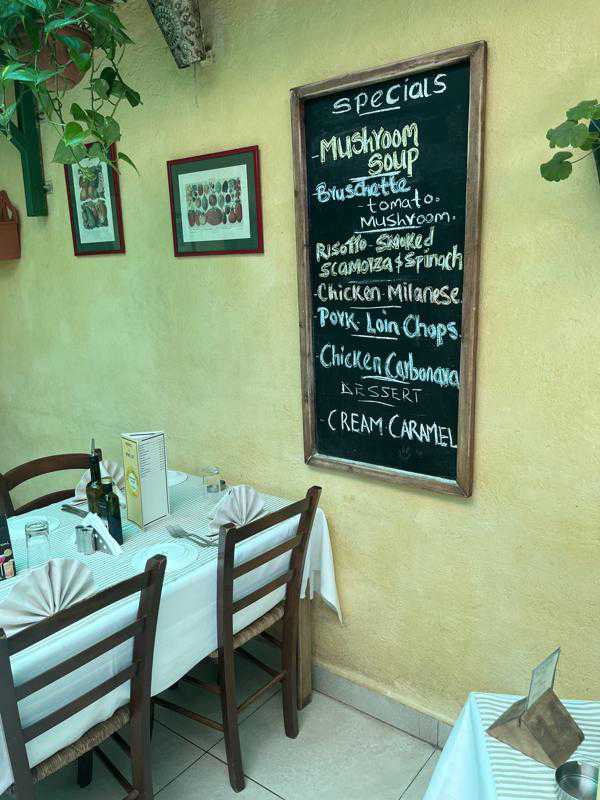 Specials
-Mushroom
Soup
-Bruschette
-tomato.
Mushroom.
Risotto Smoked
Scamorza & Spinach
-Chicken Milanese.
-Pork Loin Chops.
-Chicken Carbonara
DESSERT
-CREAM CARAMEL